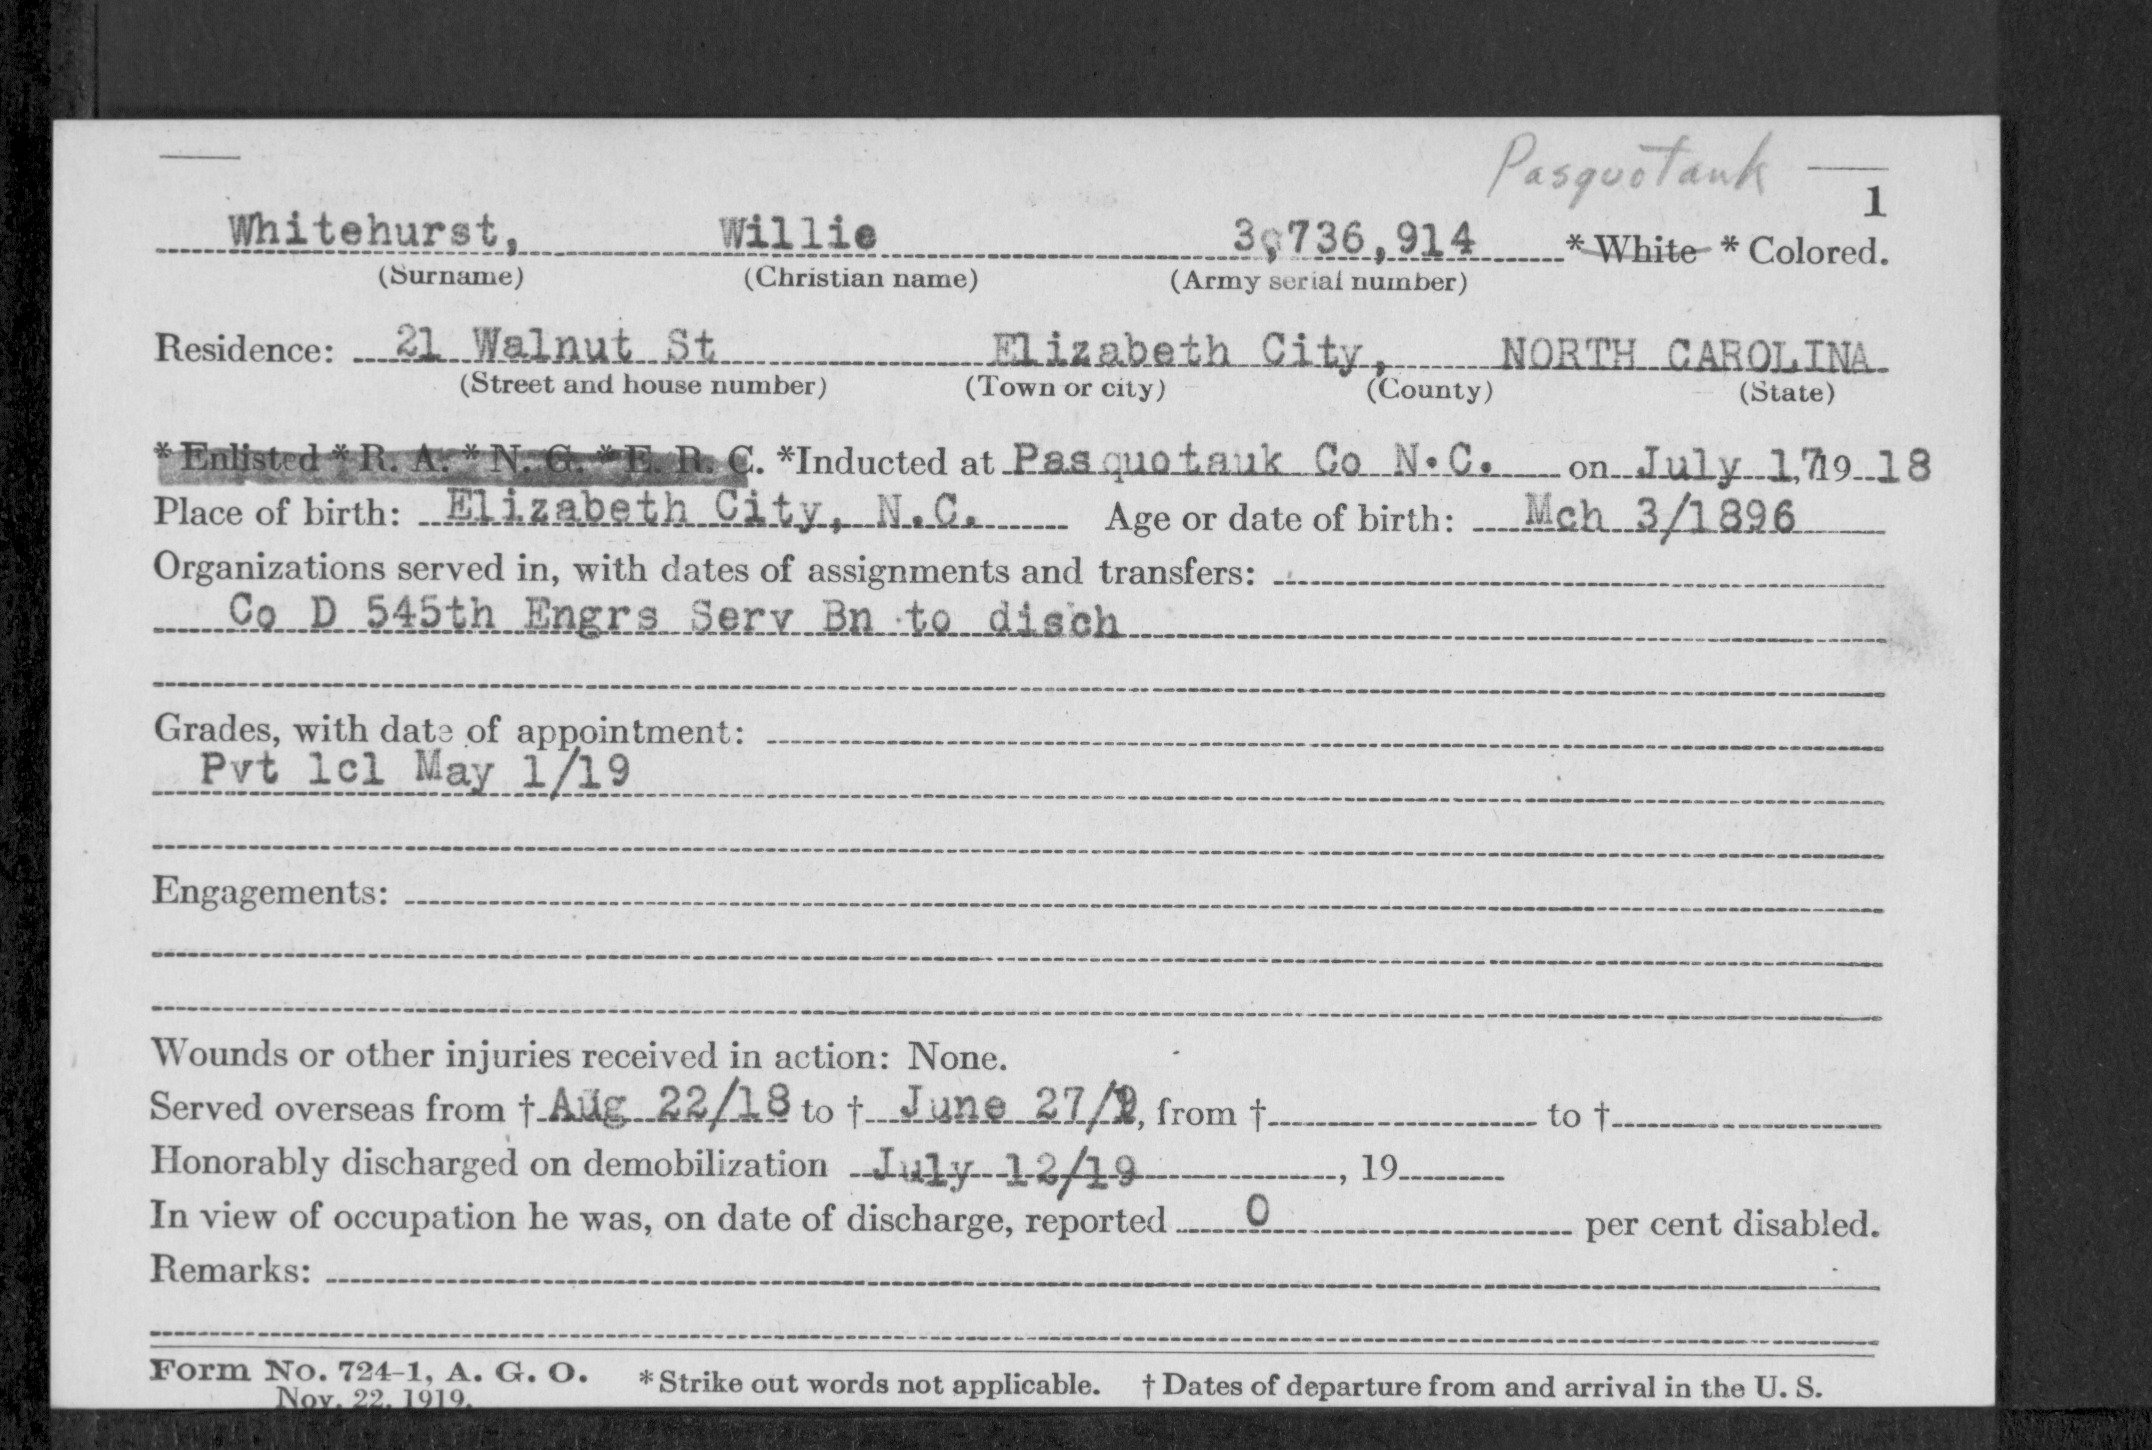 Pasquotank
1
Whitehurst, Willie 3,736,914 * White * Colored.
(Surname) (Christian name) (Army serial number)
Residence: 21 Walnut St Elizabeth City, NORTH CAROLINA
(Street and house number) (Town or city) (County) (State)
* Enlisted * R. A. * N. G. * E. R. C. *Inducted at Pasquotauk Co N.C. on July 17, 19 18
Place of birth: Elizabeth City, N.C. Age or date of birth: Mch 3/1896
Organizations served in, with dates of assignments and transfers:
Co D 545th Engrs Serv Bn to disch
Grades, with date of appointment:
Pvt 1cl May 1/19
Engagements:
Wounds or other injuries received in action: None.
Served overseas from † Aug 22/18 to † June 27/19, from † to †
Honorably discharged on demobilization July 12/19, 19
In view of occupation he was, on date of discharge, reported 0 per cent disabled.
Remarks:
Form No. 724-1, A. G. O. * Strike out words not applicable. † Dates of departure from and arrival in the U. S.
Nov. 22, 1919.